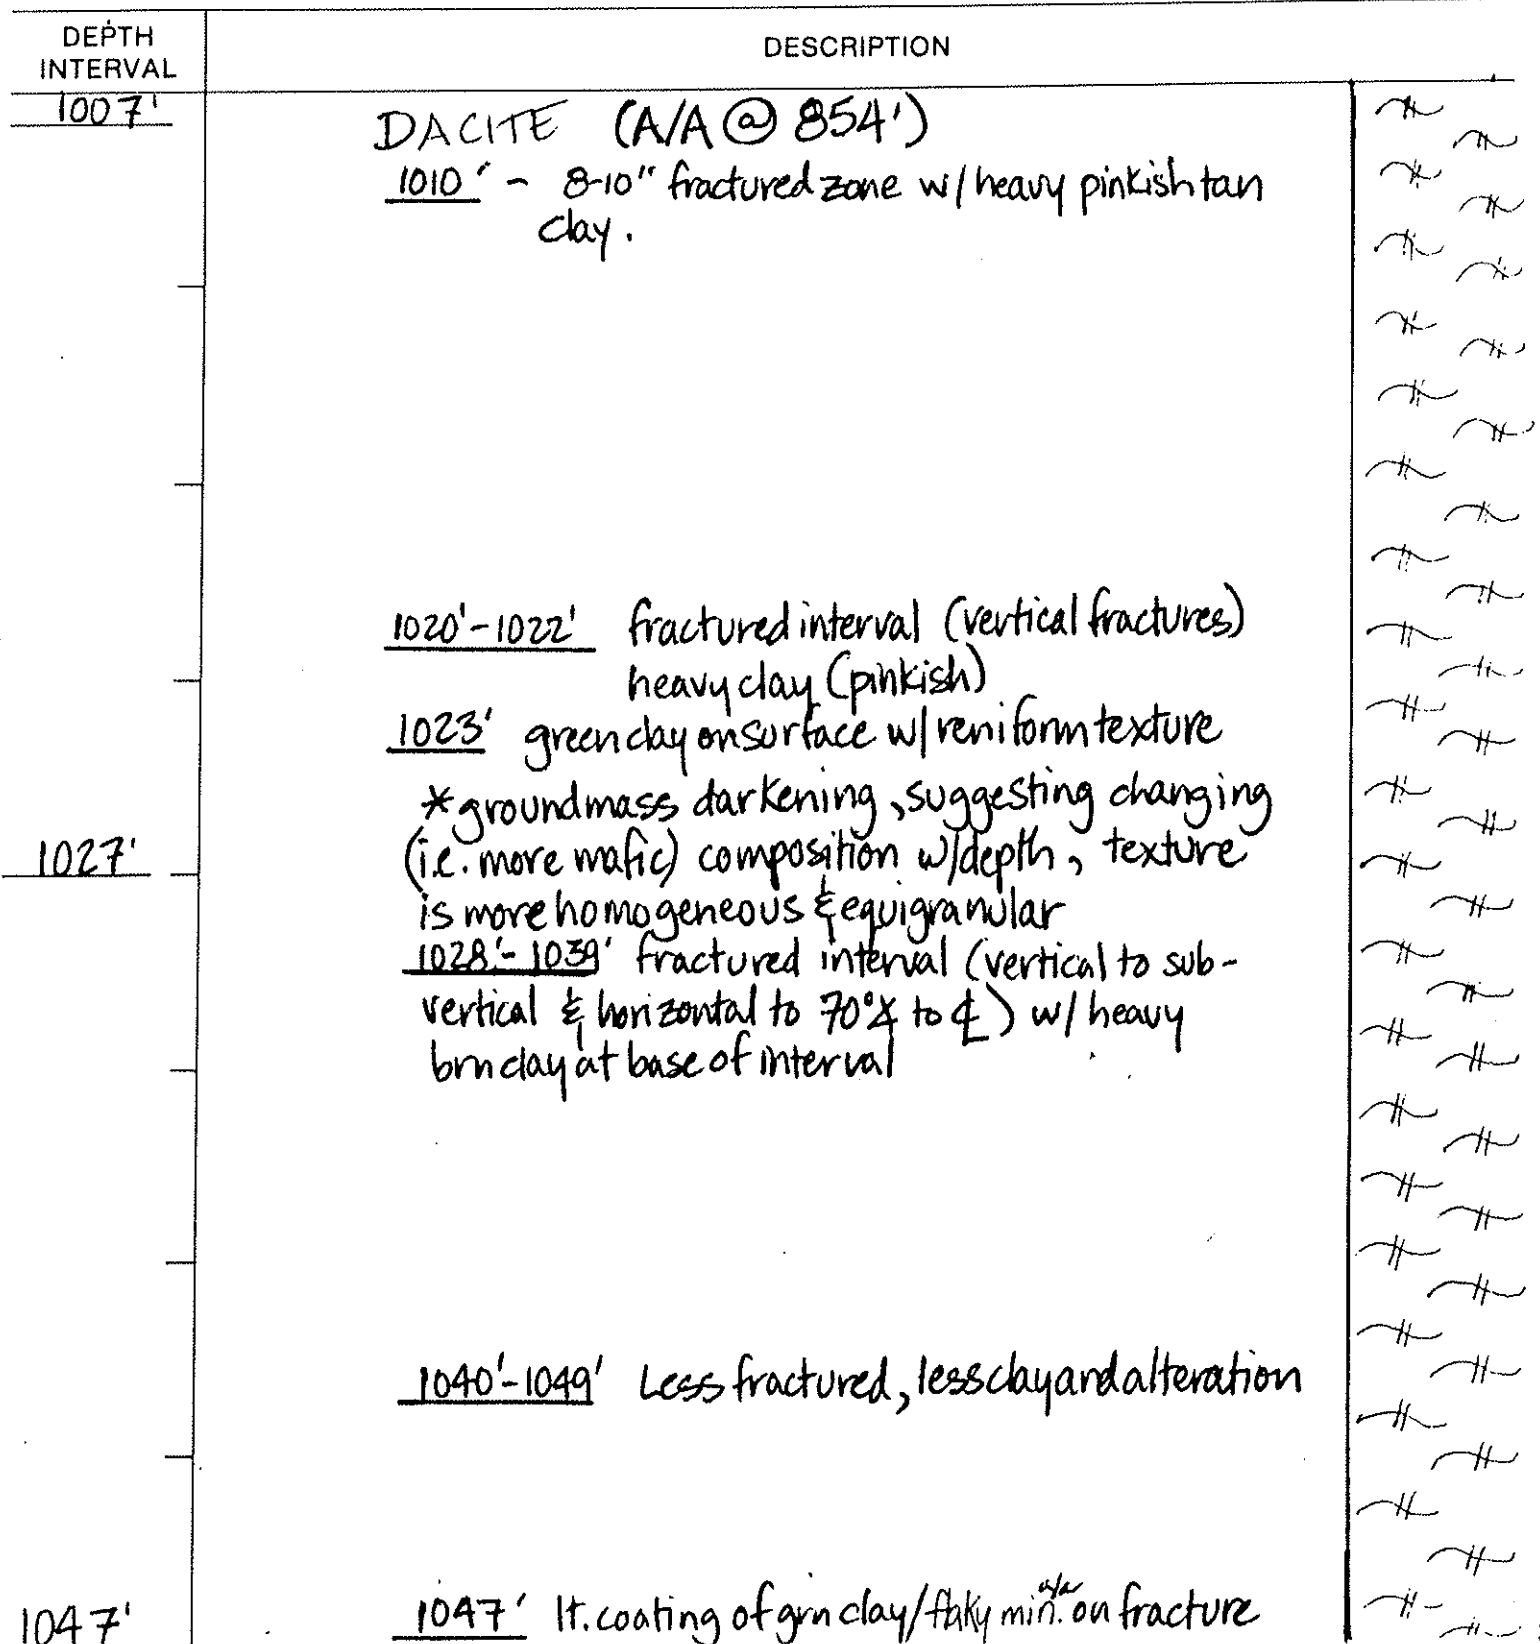 DEPTH INTERVAL
DESCRIPTION
1007'
DACITE (A/A @ 854')
1010' - 8-10" fractured zone w/ heavy pinkish tan
clay.
1020'-1022' fractured interval (vertical fractures)
heavy clay (pinkish)
1023' green clay on surface w/ reniform texture
*groundmass darkening, suggesting changing
1027'
(i.e. more mafic) composition w/depth, texture
is more homogeneous & equigranular
1028'-1039' fractured interval (vertical to sub-
vertical & horizontal to 70°∡ to ℄) w/ heavy
brn clay at base of interval
1040'-1049' Less fractured, less clay and alteration
1047'
1047' lt. coating of grn clay/flaky min. on fracture